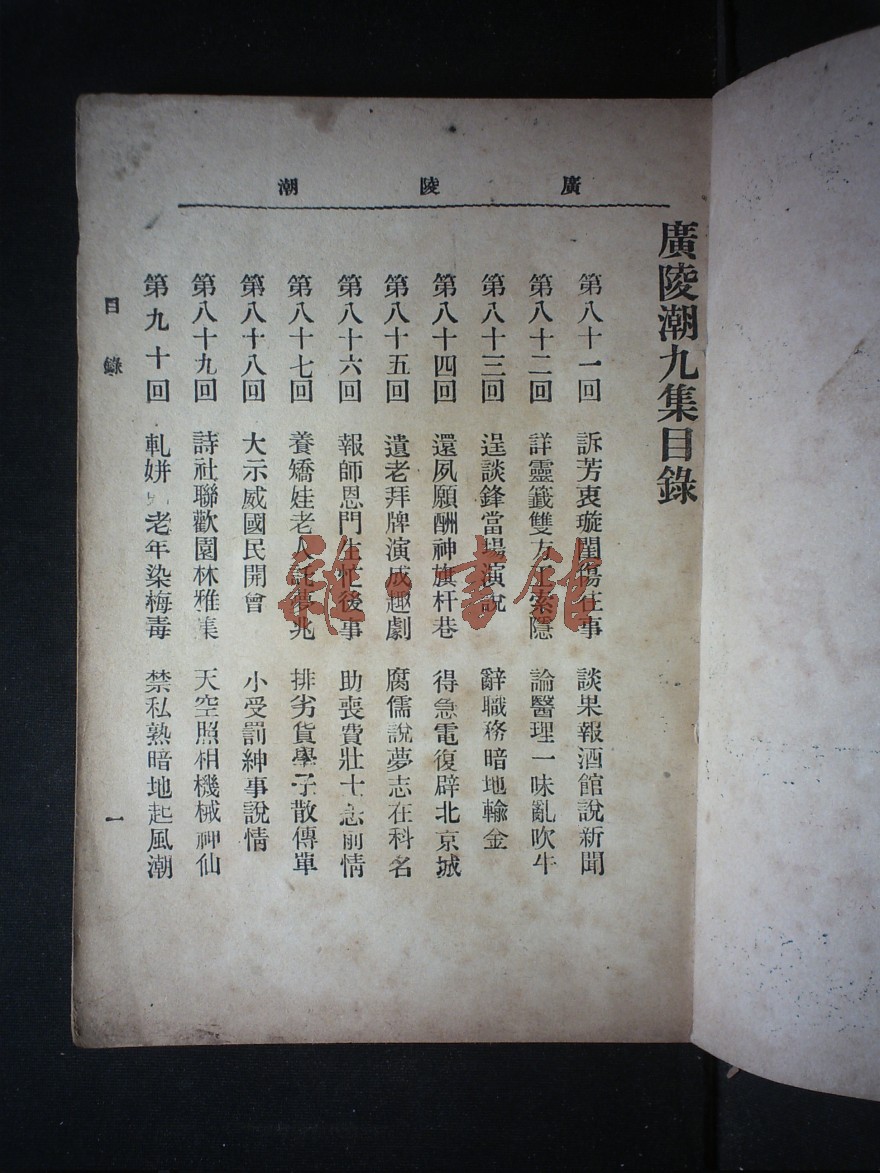 廣陵潮
廣陵潮九集目錄
第八十一回 訴芳衷璇閨傷往事 談果報酒館說新聞
第八十二回 詳靈籤雙方工索隱 論醫理一味亂吹牛
第八十三回 逞談鋒當場演說 辭職務暗地輸金
第八十四回 還夙願酬神旗杆巷 得急電復辟北京城
第八十五回 遺老拜牌演成趣劇 腐儒說夢志在科名
第八十六回 報師恩門生忙後事 助喪費壯士念前情
第八十七回 養嬌娃老人託夢兆 排劣貨學子散傳單
第八十八回 大示威國民開會 小受罰紳事說情
第八十九回 詩社聯歡園林雅集 天空照相機械神仙
第九十回 軋姘 老年染梅毒 禁私熟暗地起風潮
目錄
一
雜·書館